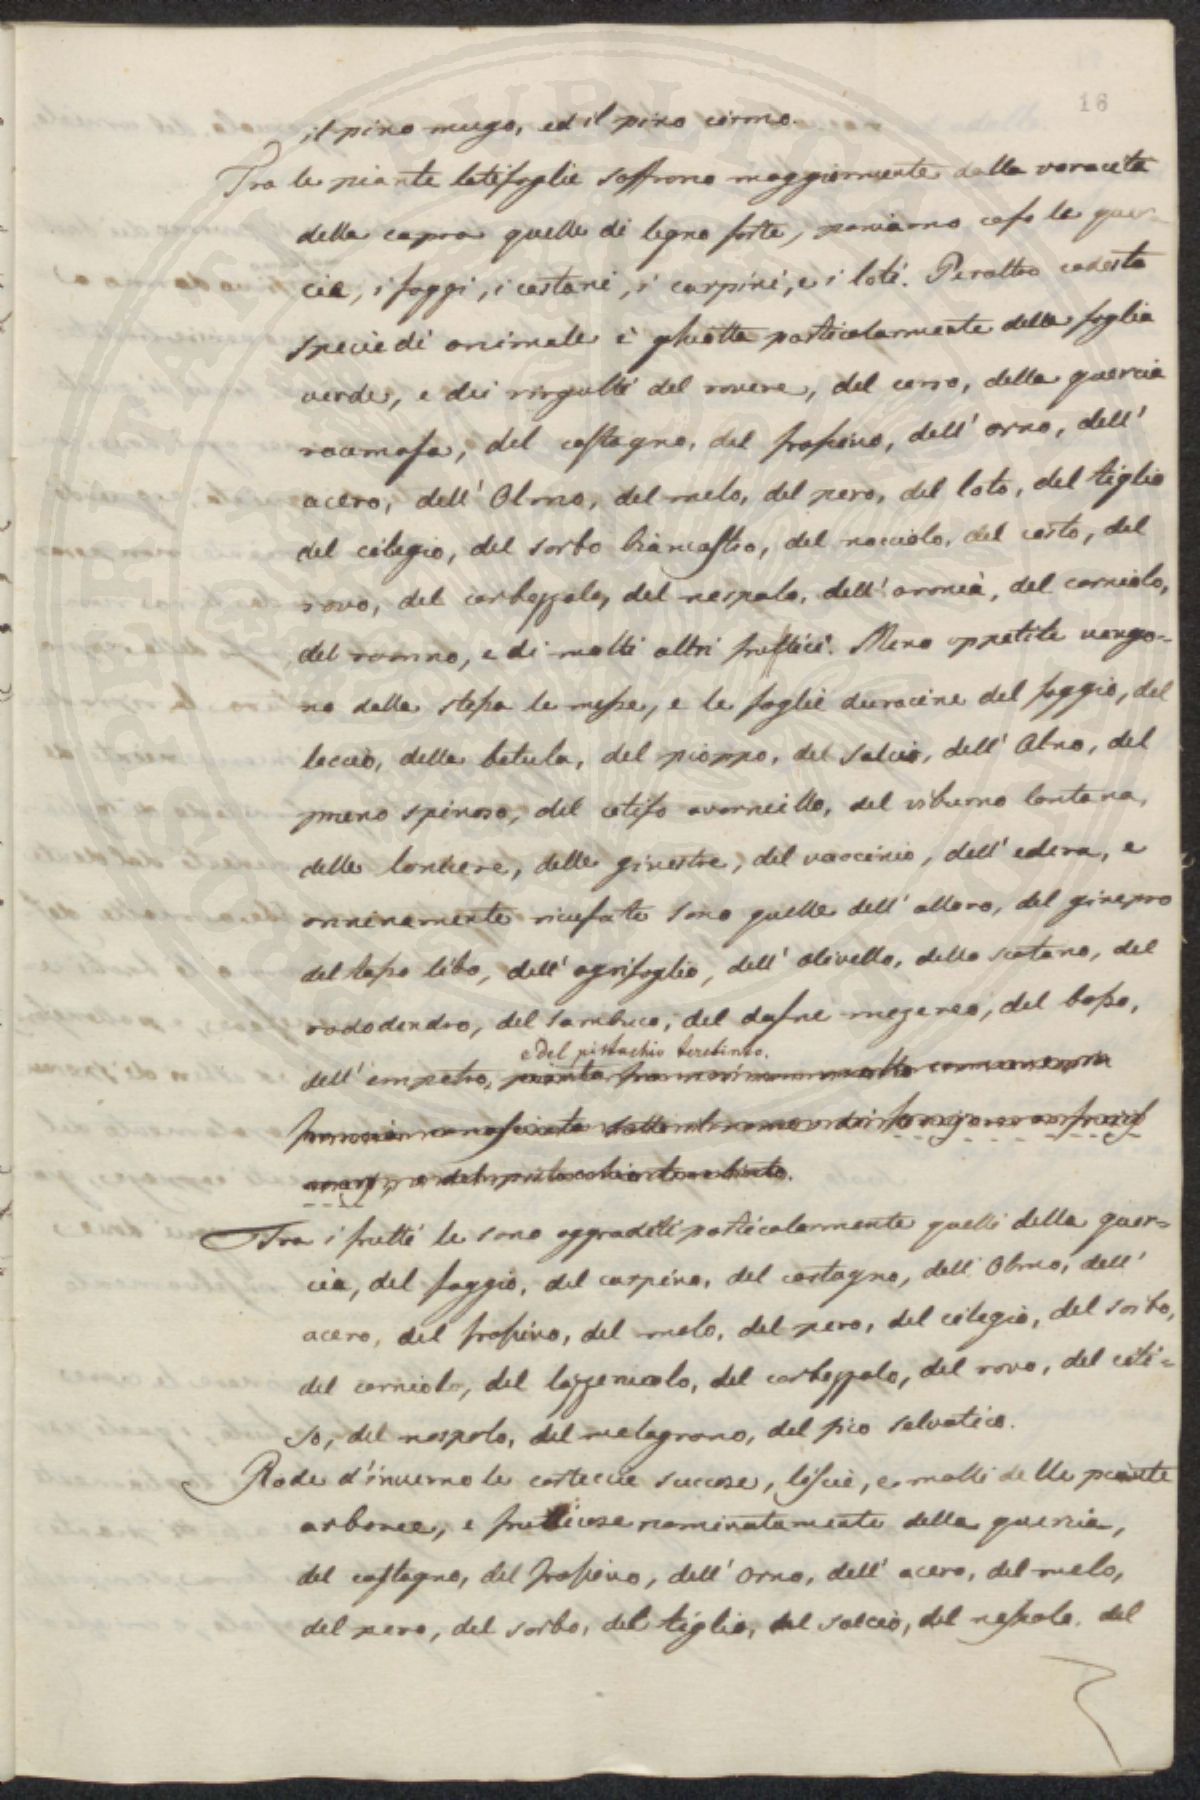 16
il pino mugo, ed il pino cirmo.
Tra le piante latifoglie soffrono maggiormente dalla voracità
della capra quelle di legno forte, poniamo caso le quer-
cie, i faggi, i castani, i carpini, e i loti. Peraltro codesta
specie di animale è ghiotta particolarmente della foglia
verde, e dei virgulti del rovere, del cerro, della quercia
racemosa, del castagno, del frassino, dell' orno, dell'
acero, dell' Olmo, del melo, del pero, del loto, del tiglio
del cilegio, del sorbo biancastro, del nocciolo, del costo, del
rovo, del corbezzolo, del nespolo, dell' aronia, del corniolo,
del ramno, e di molti altri frutici. Meno appetite vengo=
no dalla stessa le messe, e le foglie duracine del faggio, del
leccio, della betula, del pioppo, del salcio, dell' Alno, del
pruno spinoso, del citiso avorniello, del viburno lantana,
delle lonicere, delle ginestre, del vaccinio, dell' edera, e
onninamente ricusate sono quelle dell' alloro, del ginepro
del tasso libo, dell' agrifoglio, dell' olivello, dello scotano, del
rododendro, del sambuco, del dafne mezereo, del bosso,
e del pistachio terebinto.
dell' empetro, pianta
e del pistacchio terebinto.
Tra i frutti le sono aggraditi particolarmente quelli della quer=
cia, del faggio, del carpino, del castagno, dell' Olmo, dell'
acero, del frassino, del melo, del pero, del cilegio, del sorbo,
del corniolo, del lazzeruolo, del corbezzolo, del rovo, del citi=
so, del nespolo, del melagrano, del fico salvatico.
Rode d'inverno le corteccie succose, liscie, e molli delle piante
arboree, e fruticose nominatamente della quercia,
del castagno, del frassino, dell' orno, dell' acero, del melo,
del pero, del sorbo, del tiglio, del salcio, del nespolo, del